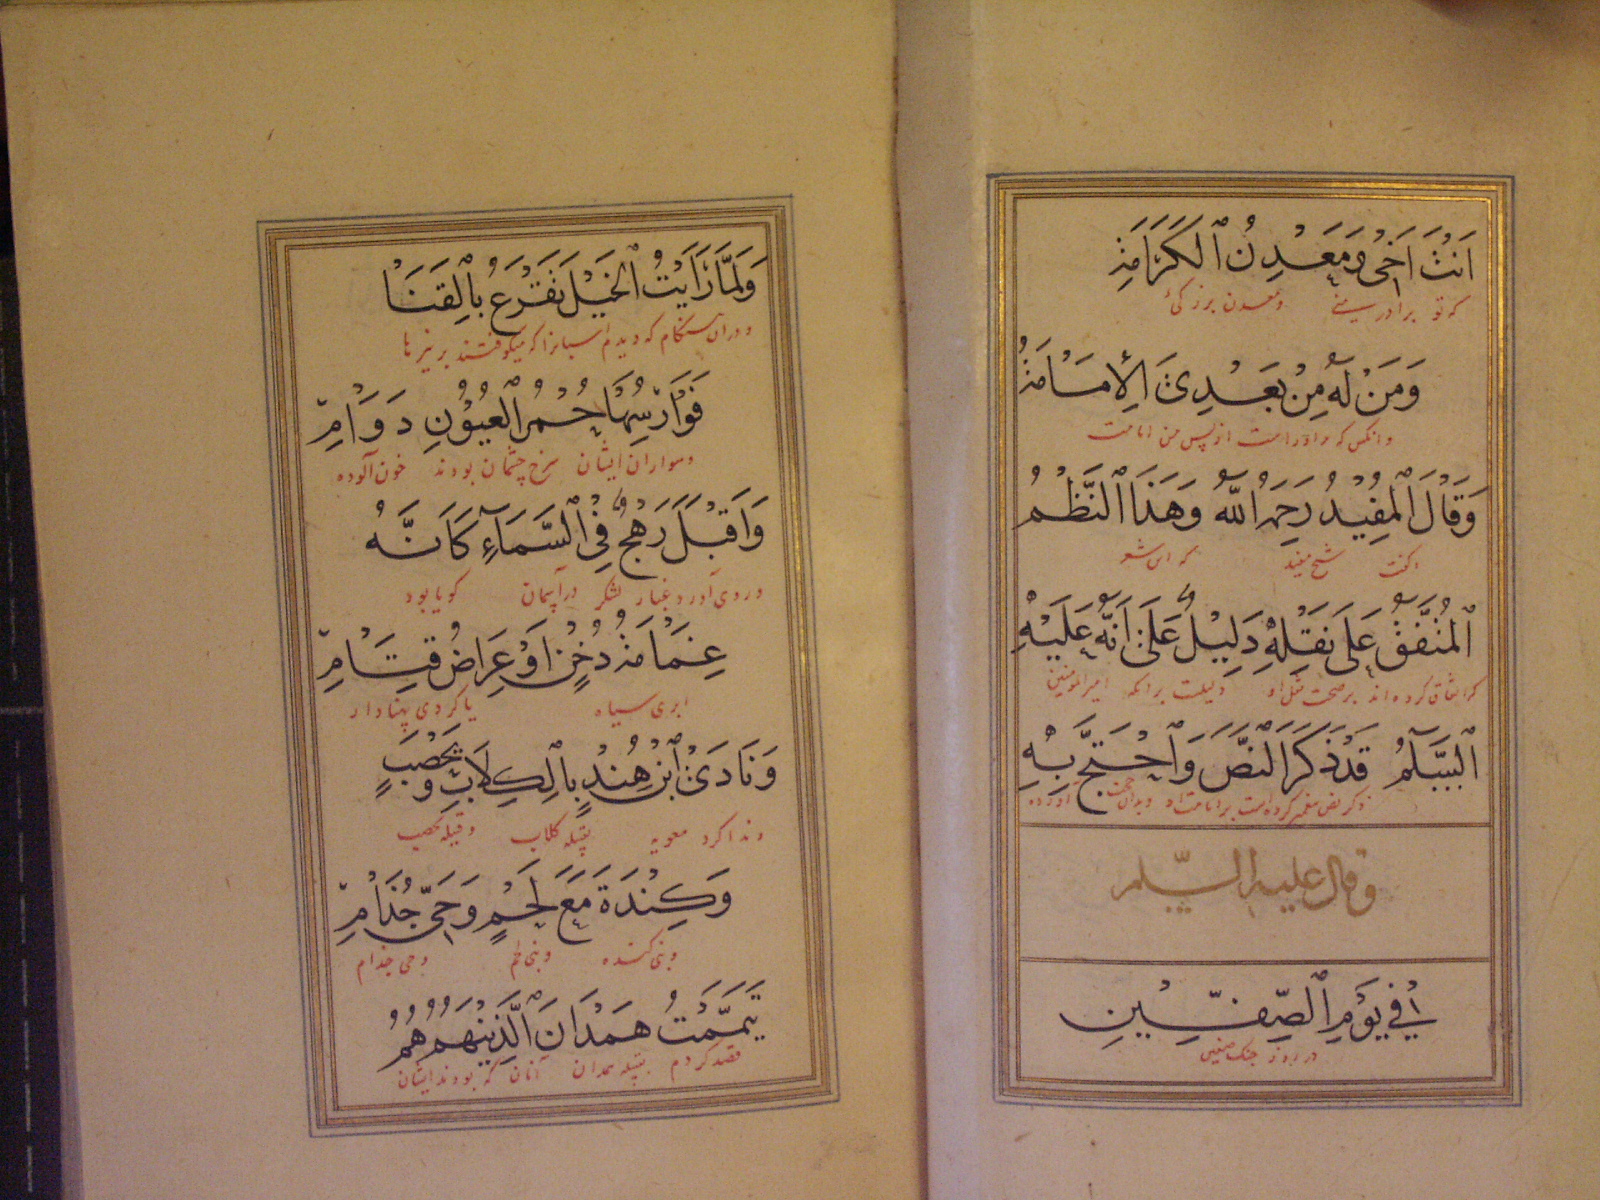 اَنْتَ اَخِی وَمَعْدِنُ الْكَرَامَةِ
که تو برادر منی و معدن بزرگی
وَمَنْ لَهُ مِنْ بَعْدِیَ الْاِمَامَةُ
و آنکس که مر او راست از پس من امامت
وَقَالَ الْمُفِیْدُ رَحِمَهُ اللّٰهُ وَهَذَا النَّظْمُ
گفت شیخ مفید که این شعر
الْمُتَّفَقُ عَلَی نَقْلِهِ دَلِیْلٌ عَلَی اَنَّهُ عَلَیْهِ
که اتفاق کرده‌اند بر صحت نقل او دلیلست برآنکه امیرالمومنین
السَّلَامُ قَدْ ذَكَرَ النَّصَّ وَاحْتَجَّ بِهِ
ذکر نص پیغمبر کرده است بر امامت او و بدان حجت آورده
وقال علیه السّلم
فِی یَوْمِ الصِّفِّیْنِ
در روز جنگ صفین
وَلَمَّا رَاَیْتُ الْخَیْلَ تَقْرَعُ بِالْقَنَا
و دران هنگام که دیدم اسبانرا که میکوفتند بر نیزها
فَوَارِسُهَا حُمْرُ الْعُیُوْنِ دَوَامِ
و سواران ایشان سرخ چشمان بودند خون آلوده
وَاَقْبَلَ رَهْجٌ فِی السَّمَآءِ كَاَنَّهُ
و روی آورد غبار لشکر در آسمان گویا بود
غَمَامَةُ دُخْنٍ اَوْ عِرَاضُ قَتَامِ
ابری سیاه یا گردی پهنادار
وَنَادَی ابْنُ هِنْدٍ بِالْكِلَابِ وَیَحْصُبٍ
و ندا کرد معویه بقبیله کلاب و قبیله یحصب
وَكِنْدَةَ مَعَ لَخْمٍ وَحَیِّ جُذَامِ
و بنی کنده و بنی لخم و حی جذام
تَیَمَّمْتُ هَمْدَانَ الَّذِیْنَ هُمُ هُمُ
قصد کردم بقبیله همدان آنان که بودند ایشان